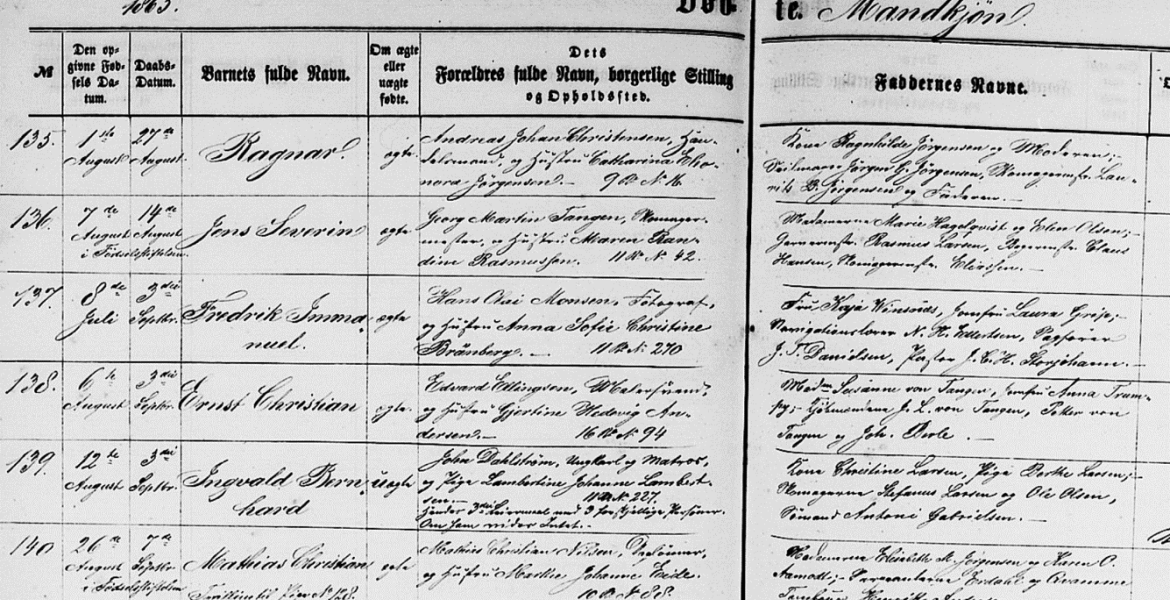 1863.
te. Mandkjön.
№
Den op-
givne Fød-
sels Da-
tum.
Daabs-
Datum.
Barnets fulde Navn.
Om ægte
eller
uægte
fødte.
Dets
Forældres fulde Navn, borgerlige Stilling
og Opholdssted.
Faddernes Navne.
135.
1ste
August
27de
August
Ragnar.
ægte
Andreas Johan Christensen, Han-
delsmand, og Hustru Catharina Eleo-
nora Jörgensen.— 9 № 16
Kone Ragnhilde Jörgensen og Moderen;—
Jörgen G. Jörgensen, Lau-
rits B. Jörgensen og Faderen.—
136.
7de
August
14de
August
i Fødselsstiftelsen
Jens Severin
ægte
Georg Martin Tangen, Skomager-
mester, og Hustru Maren Ran-
dine Rasmussen. 11 № 42.
Madamerne Marie Hagelqvist og Elen Olsen;—
Garvermstr. Rasmus Larsen, Bagermstr. Claus
Hansen, Skomagermstr. Eliassen.—
137.
8de
Juli
3die
Septbr.
Fredrik Imma-
nuel.
ægte
Hans Olai Monsen, Fotograf,
og Hustru Anna Sofie Christine
Brünberg.— 11 № 270
Fru Kaja Jomfru Laura Greje;—
Navigationslærer N. H. Ellertsen,
J. T. Danielsen, Pastor J. C. H. Storjohann.—
138.
6te
August
3die
Septbr.
Ernst Christian
ægte.
Edvard Ellingsen, Malersvend,
og Hustru Gjertine Hedevig An-
dersen.— 16 № 94
Madm Susanne von Tangen, Jomfru Anna Trum-
py;— Kjöbmændene J. L. von Tangen, Petter von
Tangen og Joh. Berle.—
139.
12te
August
3die
Septbr.
Ingvald Bern-
hard
uægte
John Dahlström, Ungkarl og Matros,
og Pige Lambertine Johanne Lambert-
sen.— 11 № 227.
Hendes 3die Leiermaal med 3 forskjellige Personer.
Om ham vides Intet.—
Kone Christine Larsen, Pige Berthe Larsen;—
Skomagerne Stefanus Larsen og Ole Olsen,
Sömand Antoni Gabrielsen.—
140
26de
August
7de
Septbr.
i Fødselsstiftelsen
Mathias Christian
Tvilling til Pige № 128.
ægte
Mathis Christian Nilsen, Dagleiner,
og Hustru Marthe Johanne Eide.
10 № 88.
Madamerne Elisabeth M. Jörgensen og Karen O.
Aamodt;— Sergeanterne Erdahl og Kvamme